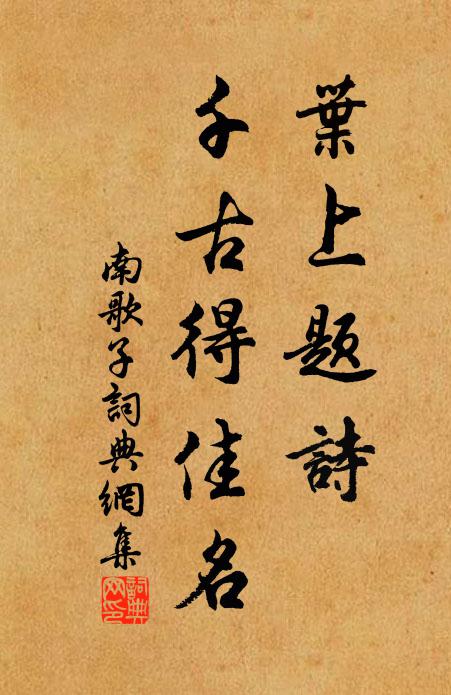 葉上題詩
千古得佳名
南歌子詞典網集
詞典網印